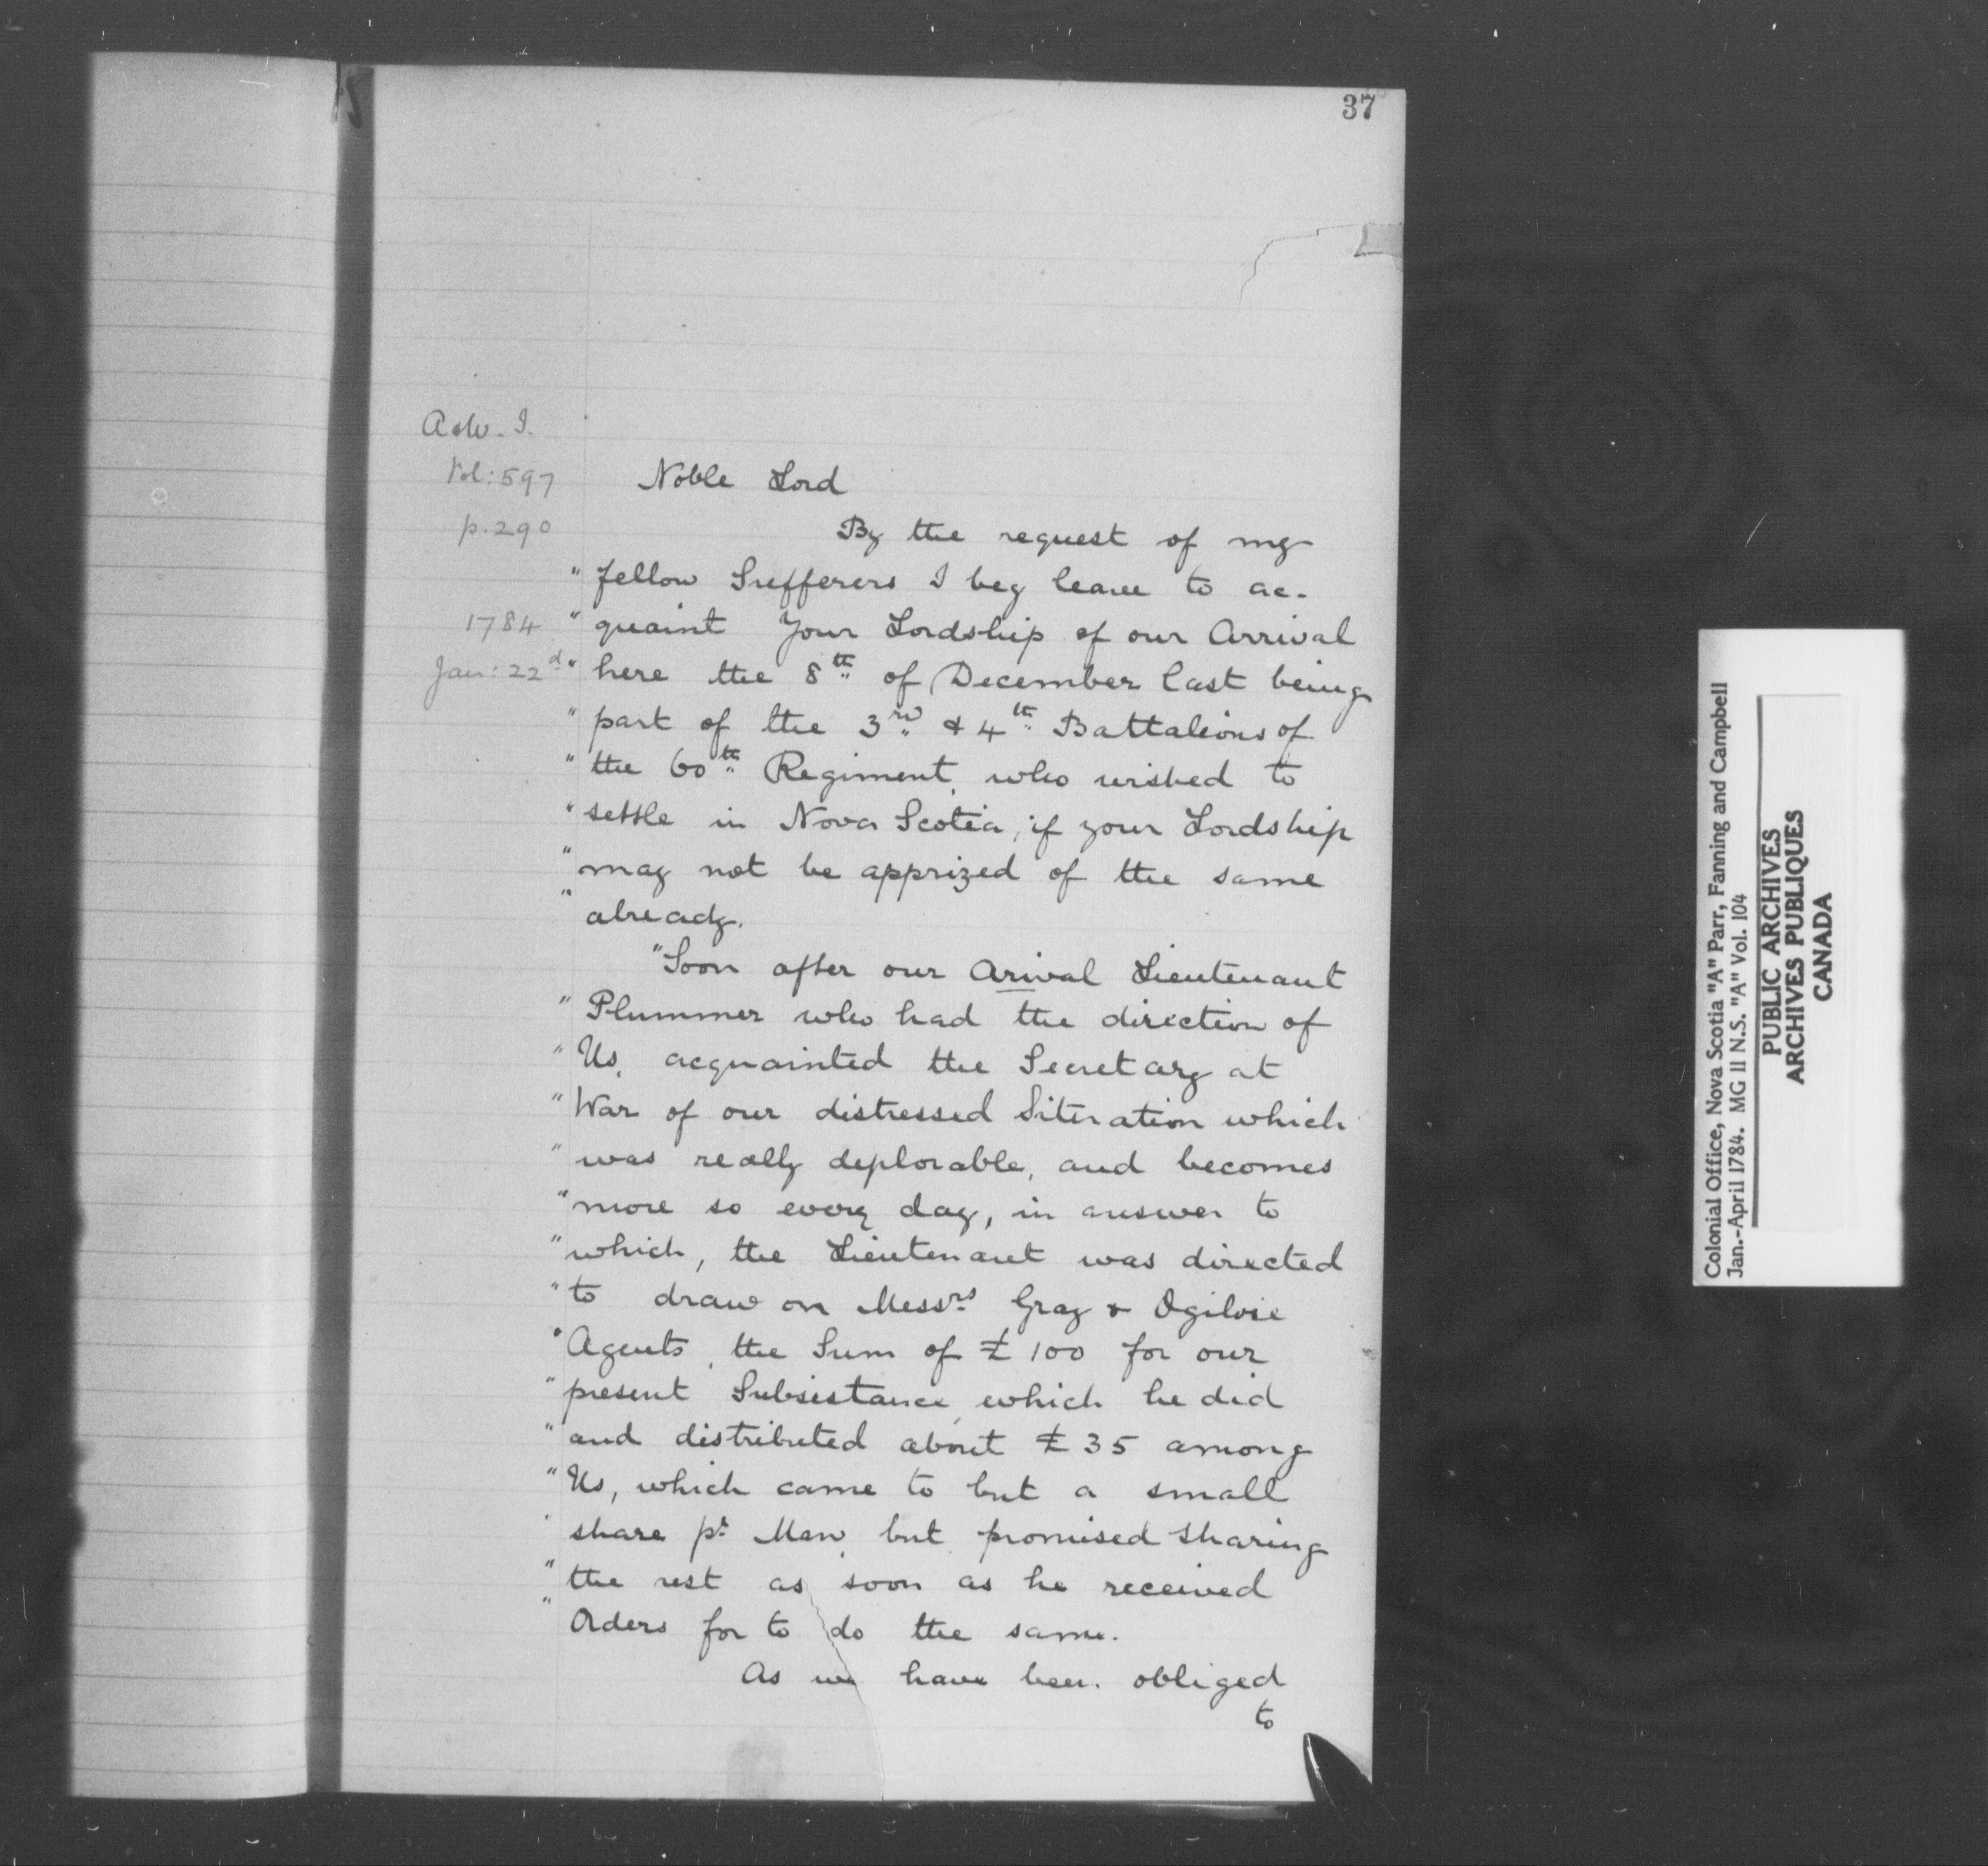 37
A & W. I.
Vol: 597
p. 290
1784
Jan: 22d
Noble Lord
By the request of my
" fellow Sufferers I beg leave to ac-
" quaint Your Lordship of our Arrival
" here the 8th of December last being
" part of the 3rd & 4th Battalions of
" the 60th Regiment, who wished to
" settle in Nova Scotia, if your Lordship
" may not be apprized of the same
" already.
"Soon after our Arival Lieutenant
" Plummer who had the direction of
" Us, acquainted the Secretary at
" War of our distressed Situation which
" was really deplorable, and becomes
" more so every day, in answer to
" which, the Lieutenant was directed
" to draw on Messrs Gray & Ogilvie
" Agents, the Sum of £100 for our
" present Subsistance, which he did
" and distributed about £35 among
" Us, which came to but a small
" share pr Man, but promised sharing
" the rest as soon as he received
" Orders for to do the same.
As we have been obliged
to
Colonial Office, Nova Scotia "A" Parr, Fanning and Campbell
Jan.-April 1784. MG 11 N.S. "A" Vol. 104
PUBLIC ARCHIVES
ARCHIVES PUBLIQUES
CANADA